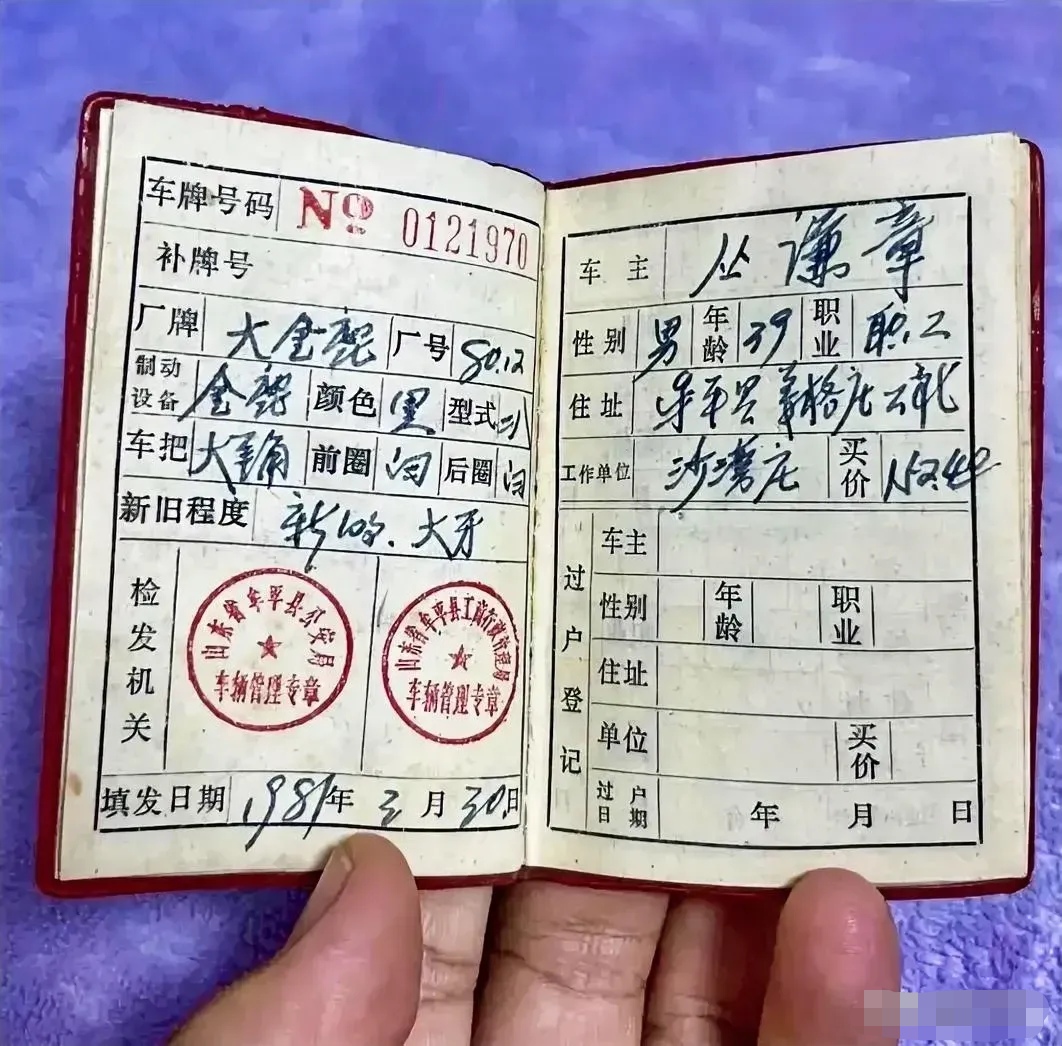 车牌号码 No 0121970
补牌号
厂牌 大金鹿 厂号 80.12
制动设备 金鹿 颜色 黑 型式
车把 大 前圈 后圈
新旧程度 新的、大牙
检发机关
山东省牟平县公安局
车辆管理专章
山东省牟平县工商行政管理局
车辆管理专章
填发日期 1981年 三月 30日
车主 丛谦章
性别 男 年龄 39 职业 职工
住址 牟平县莒格庄公社
工作单位 沙 庄 买价 152.42
过户登记
车主
性别 年龄 职业
住址
单位 买价
过户日期 年 月 日